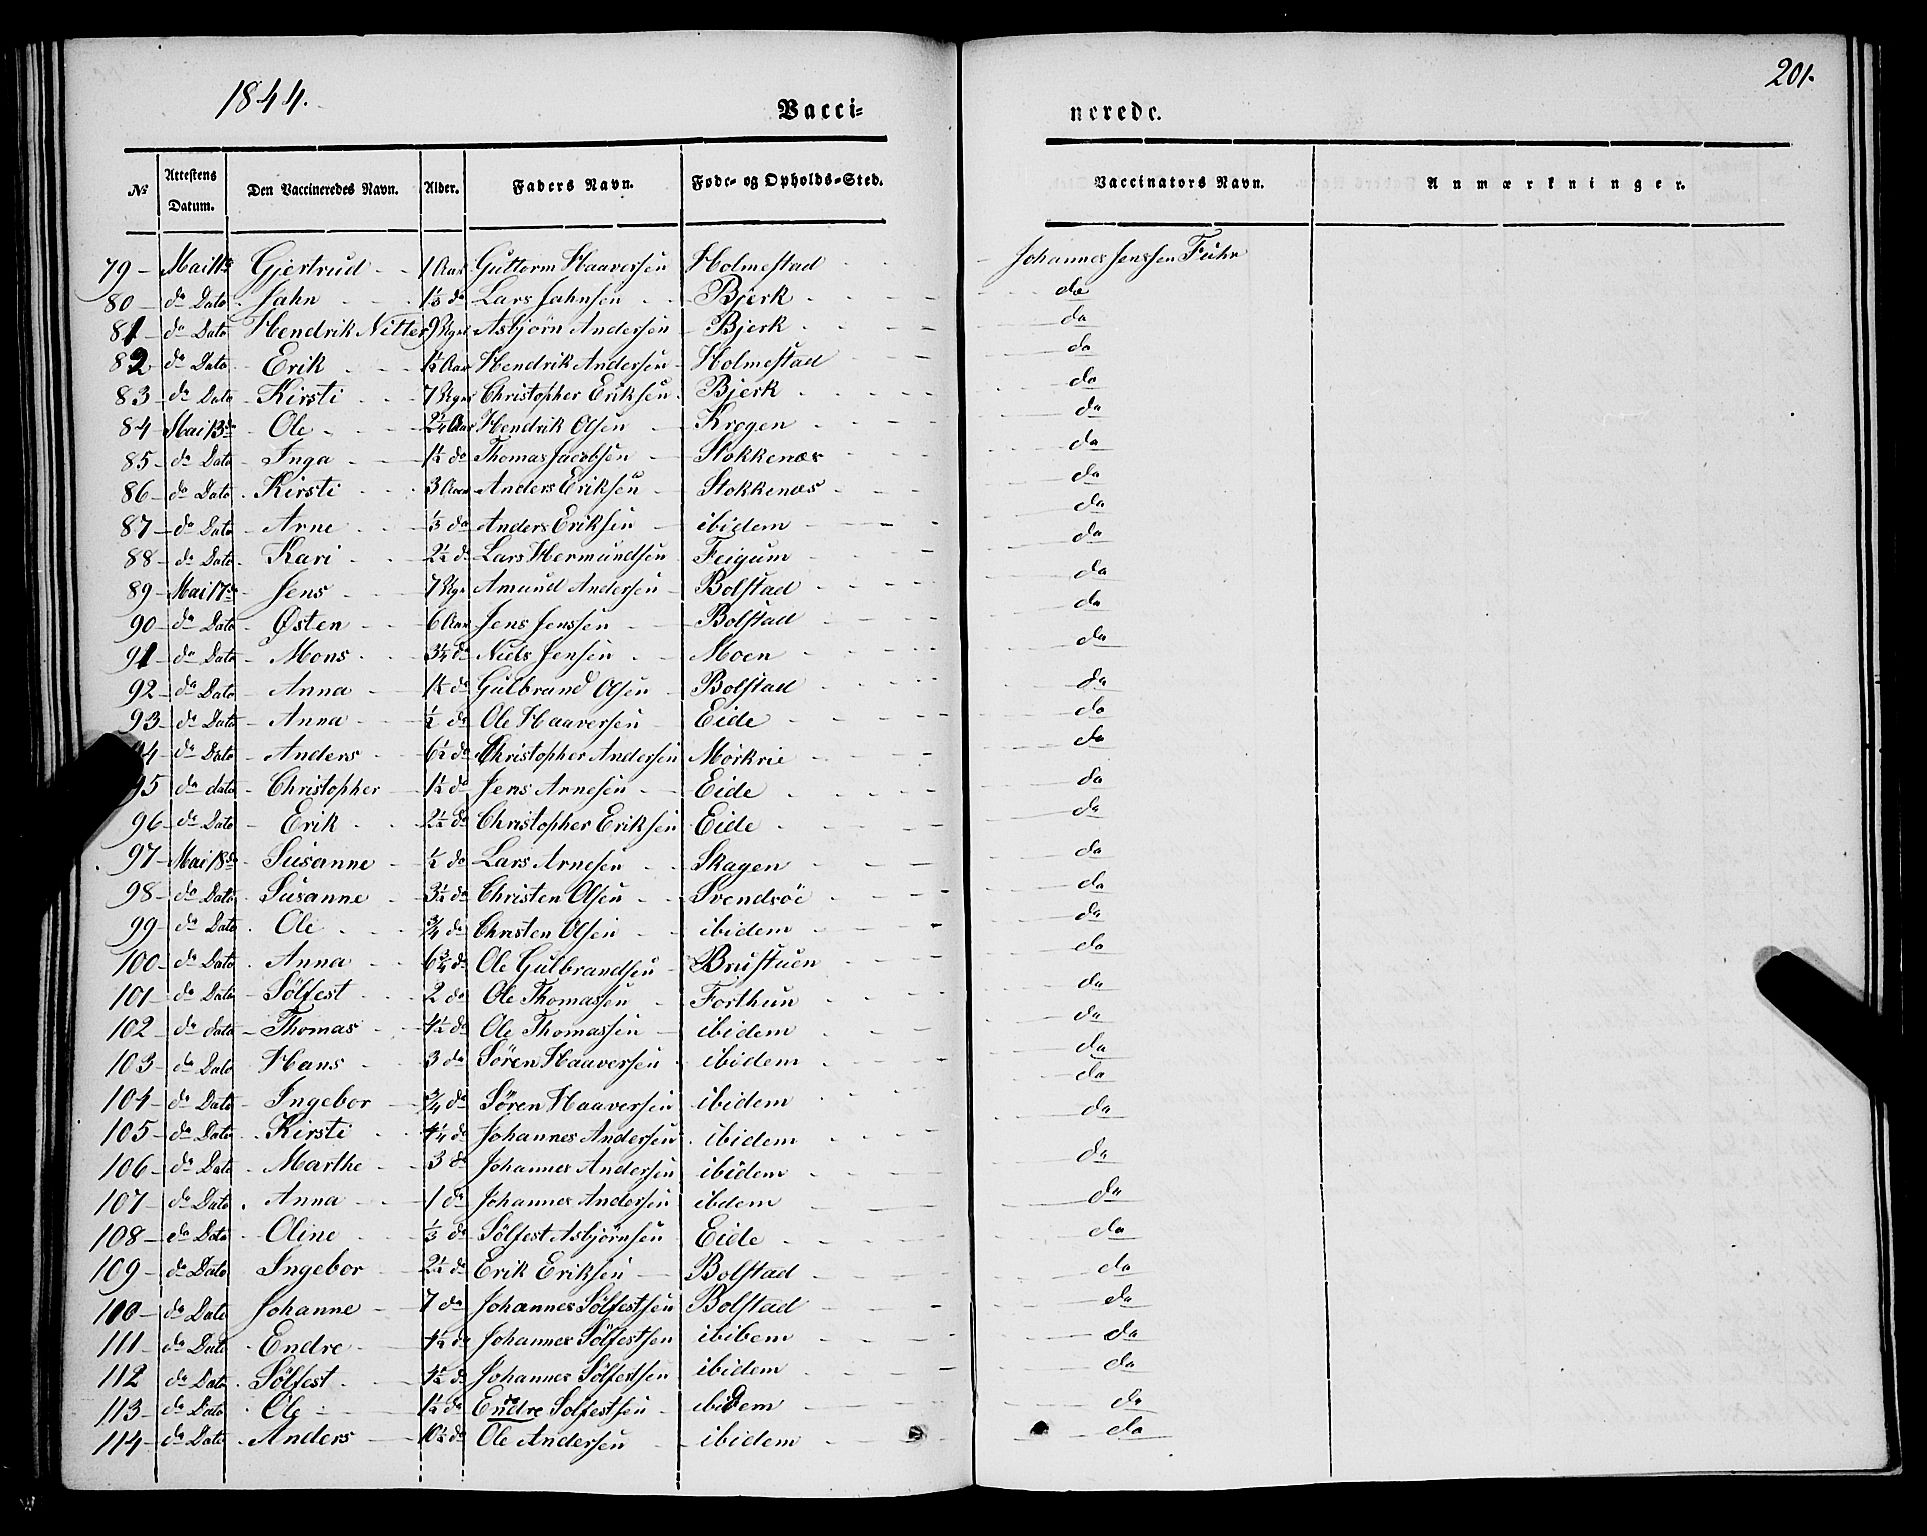 1844.
Vacci-
nerede.
201.
No
Attestens Datum.
Den Vaccineredes Navn.
Alder.
Faders Navn.
Føde- og Opholds-Sted.
Vaccinators Navn.
Anmærkninger.
79 Mai 11te Gjertrud 1 Aar Guttorm Haaversen Holmestad Johannes Jenssen Fuhr
80 do Dato Jahn 1⅓ do Lars Jahnsen Bjerk do
81 do Dato Hendrik Nitter 9 Uger Asbjørn Andersen Bjerk do
82 do Dato Erik 1½ Aar Hendrik Andersen Holmestad do
83 do Dato Kirsti 7 Uger Christopher Eriksen Bjerk do
84 Mai 13de Ole 2¼ Aar Hendrik Olsen Krogen do
85 do Dato Inga 1½ do Thomas Jacobsen Stokkenæs do
86 do Dato Kirsti 3 Aar Anders Eriksen Stokkenæs do
87 do Dato Arne ⅓ do Anders Eriksen ibidem do
88 do Dato Kari 2½ do Lars Hermundsen Feigum do
89 Mai 17de Jens 7 Uger Amund Andersen Bolstad do
90 do Dato Østen 6 Aar Jens Jenssen Bolstad do
91 do Dato Mons 3¼ do Niels Jensen Moen do
92 do Dato Anna 1½ do Gulbrand Olsen Bolstad do
93 do Dato Anna ½ do Ole Haaversen Eide do
94 do Dato Anders 6½ do Christopher Andersen Mørkrie do
95 do dato Christopher 1½ do Jens Arnesen Eide do
96 do Dato Erik 2½ do Christopher Eriksen Eide do
97 Mai 18de Susanne ½ do Lars Arnesen Skagen do
98 do Dato Susanne 3½ do Christen Olsen Svendsøe do
99 do Dato Ole ¾ do Christen Olsen ibidem do
100 do Dato Anna 6¾ do Ole Gulbrandsen Brustuen do
101 do Dato Sølfest 2 do Ole Thomassen Forthun do
102 do dato Thomas 4½ do Ole Thomassen ibidem do
103 do Dato Hans 3 do Søren Haaversen ibidem do
104 do Dato Ingebor ¾ do Søren Haaversen ibidem do
105 do Dato Kirsti 4¼ do Johannes Andersen ibidem do
106 do Dato Marthe 3 do Johannes Andersen ibidem do
107 do Dato Anna 1 do Johannes Andersen ibdem do
108 do Dato Oline ⅓ do Sølfest Asbjørnsen Eide do
109 do Dato Ingebor 2½ do Erik Eriksen Bolstad do
110 do Dato Johanne 7 do Johannes Sølfestsen Bolstad do
111 do Dato Endre 4½ do Johannes Sølfestsen ibibem do
112 do Dato Sølfest 4½ do Johannes Sølfestsen ibidem do
113 do Dato Ole 1½ do Endre Solfestsen ibidem do
114 do Dato Anders 10½ do Ole Andersen ibidem do